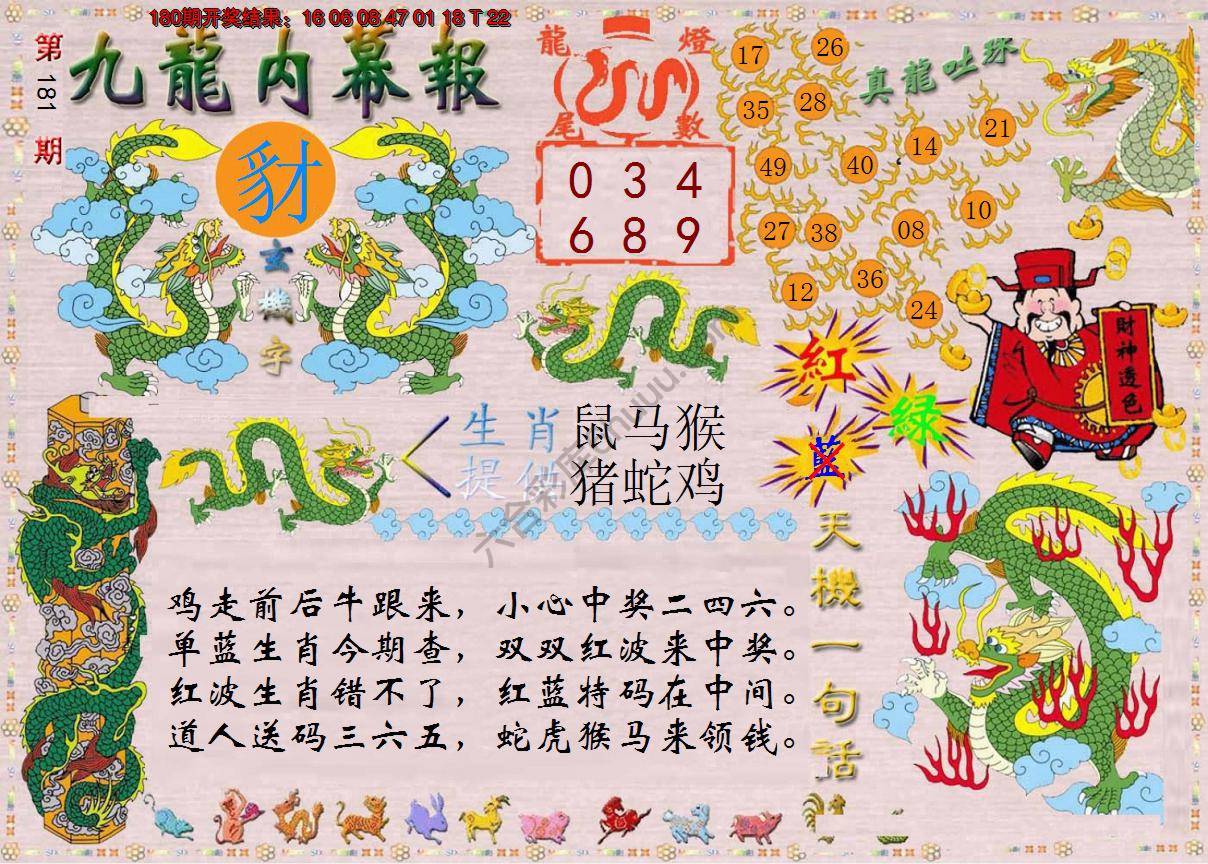 180期开奖结果：16 06 08 47 01 18 T 22
第181期
九龍内幕報
龍燈
尾數
034
689
真龍吐珠
17
26
35
28
49
40
14
21
27
38
08
10
12
36
24
豺
玄機字
財神透色
紅
綠
藍
生肖
提供
鼠马猴
猪蛇鸡
六合彩库
天機一句話
鸡走前后牛跟来，小心中奖二四六。
单蓝生肖今期查，双双红波来中奖。
红波生肖错不了，红蓝特码在中间。
道人送码三六五，蛇虎猴马来领钱。